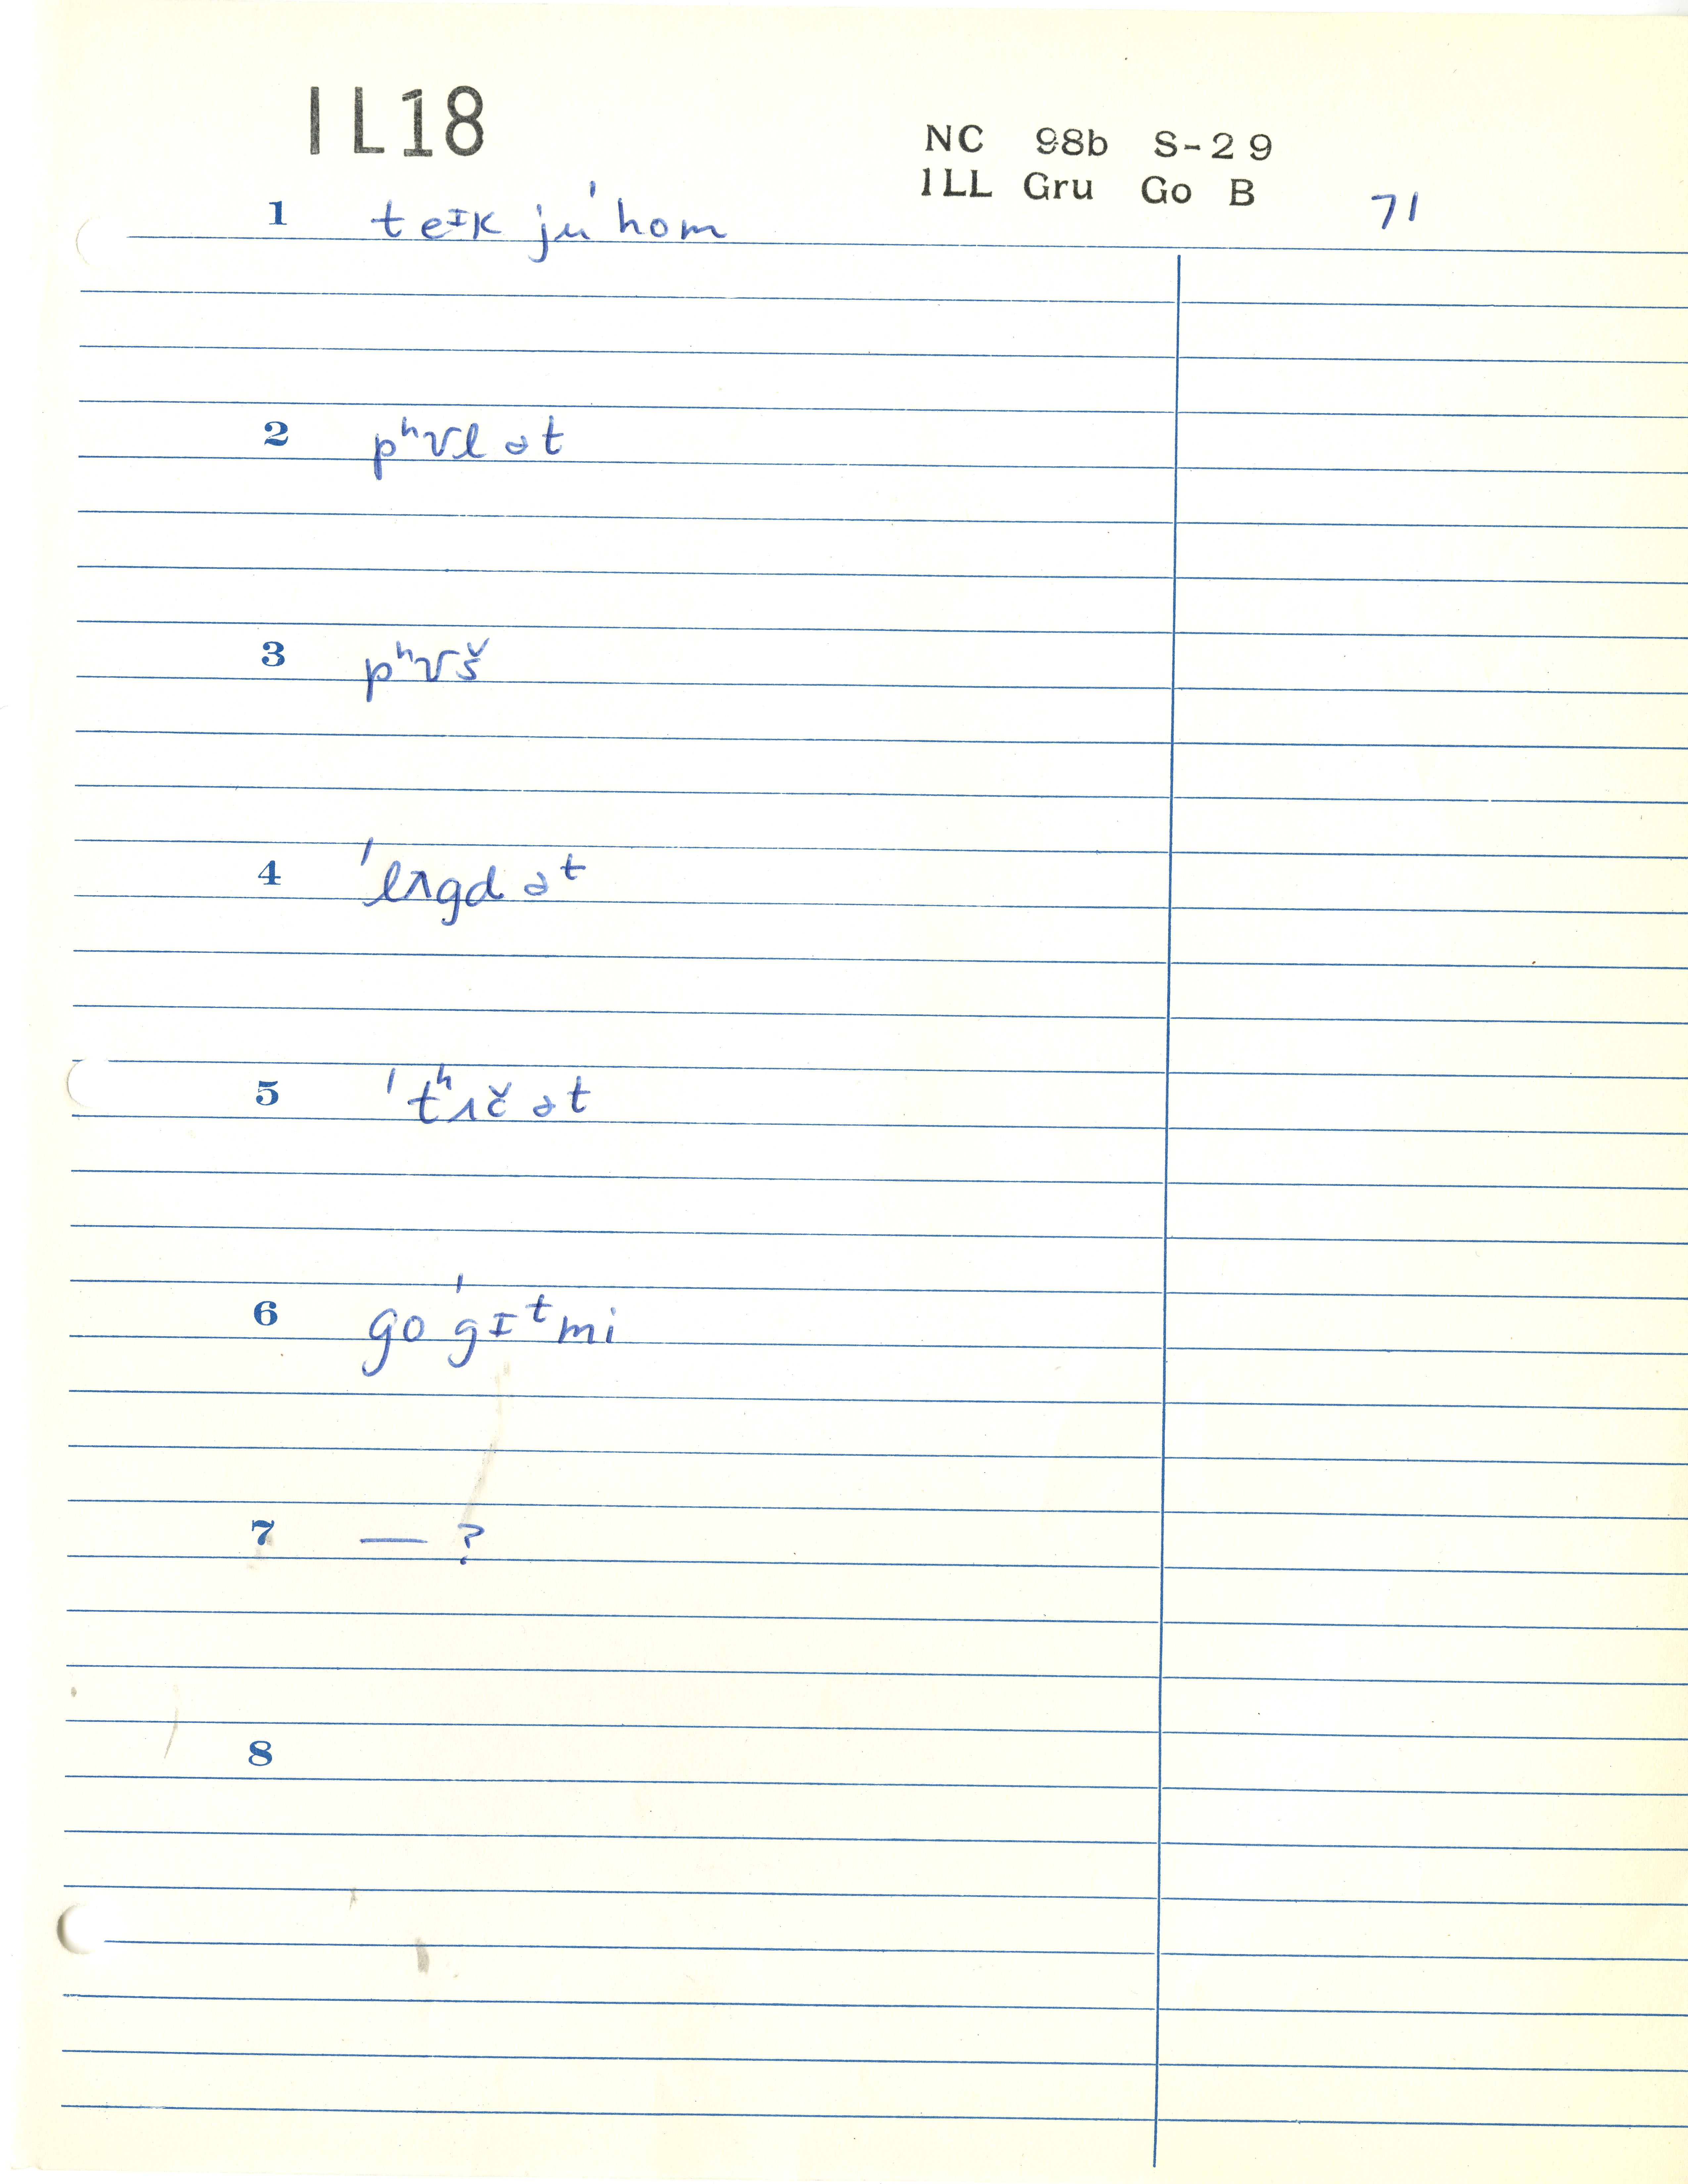 IL18
NC 98b S-29
ILL Gru Go B
71
1 teᴵK ju ˈhom
2 pʰʊl ət
3 pʰʊš
4 ˈlʌgd əᵗ
5 ˈtʰʌč ət
6 go ˈgɪᵗmi
7 — ?
8